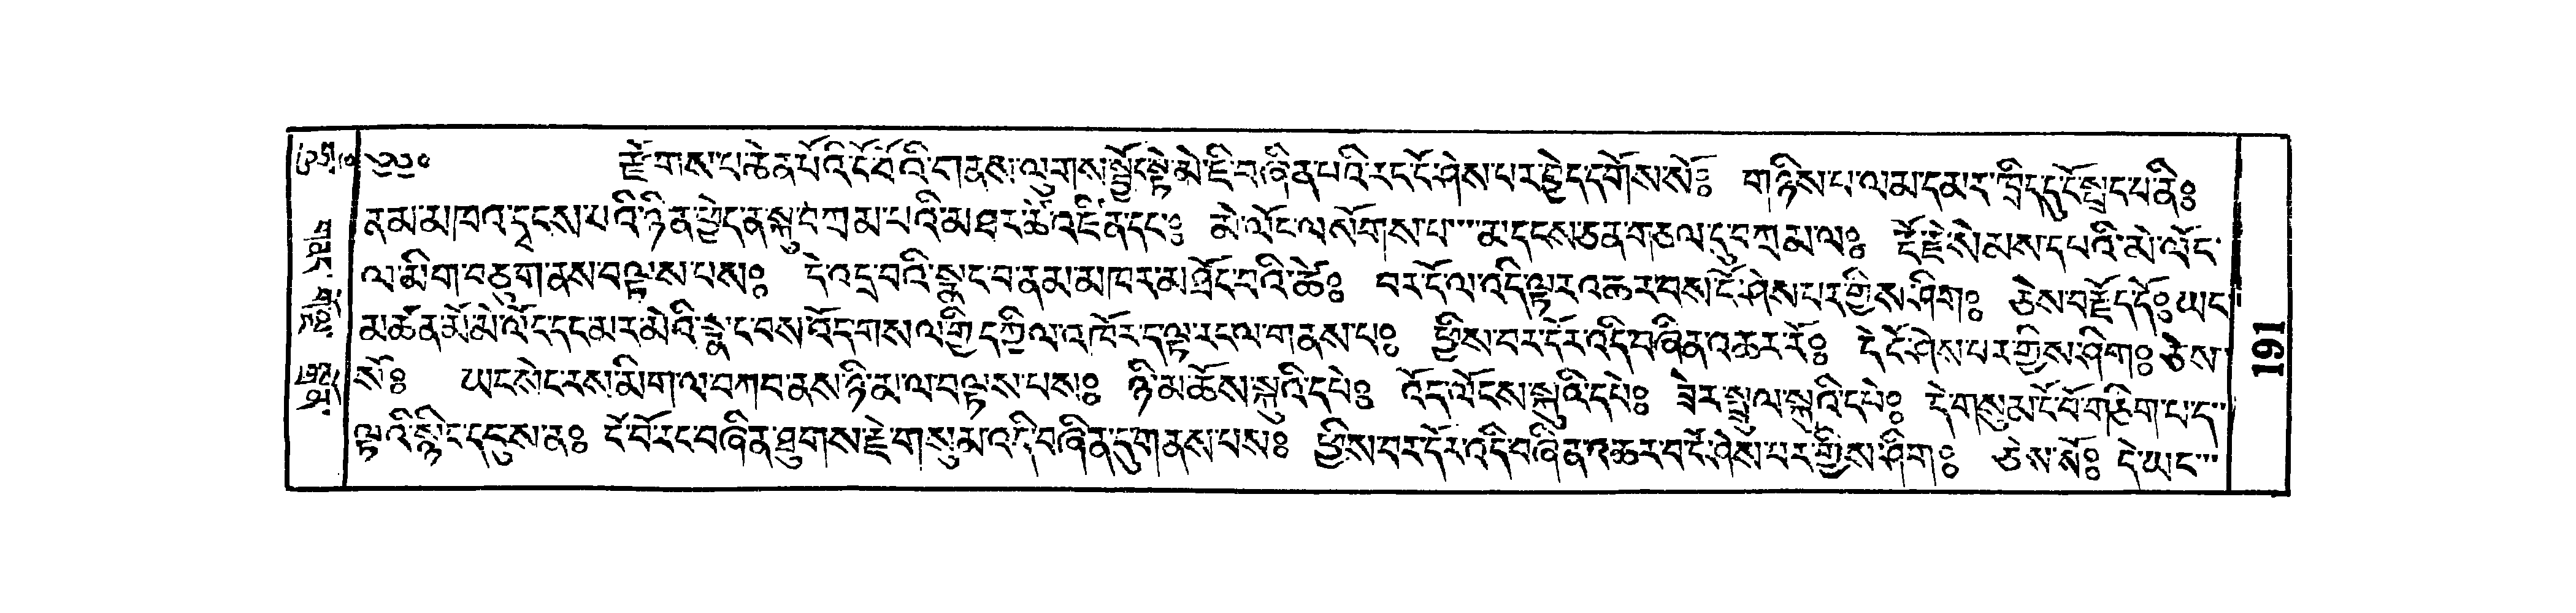 རྫོགས་པ་ཆེན་པོའི་ངོ་བོའི་གནས་ལུགས་སྤྱོང་སྟེ་མེ་ཇི་བཞིན་པའི་རང་ངོ་ཤེས་པར་བྱེད་དགོས་སོ༔ གཉིས་པ་ལམ་དམར་ཁྲིད་དུ་ངོ་སྤྲད་པ་ནི༔
ནམ་མཁའ་དྭངས་པའི་ཉིན་ཕྱེད་ན་སྐུ་བཀྲམ་པའི་མཐར་ཚེ་འཛིན་དང༔ མེ་ལོང་ལ་སོགས་པ་མ་དངས་ཅན་གཅལ་དུ་བཀྲམ་ལ༔ རྡོ་རྗེ་སེམས་དཔའི་མེ་ལོང་
ལ་མིག་བཙུག་ནས་བལྟས་པས༔ དེ་འདྲ་བའི་སྣང་བ་ནམ་མཁར་མཐོང་བའི་ཚེ༔ བར་དོ་ལ་འདི་ལྟར་འཆར་བས་ངོ་ཤེས་པར་གྱིས་ཤིག༔ ཅེས་བརྗོད་དོ༔ ཡང་
མཚན་མོ་མེ་ལོང་དང་མར་མེའི་སྣང་བས་འོད་གསལ་གྱི་དཀྱིལ་འཁོར་ད་ལྟ་རང་ལ་གནས་པ༔ ཕྱིས་བར་དོར་འདི་བཞིན་འཆར་རོ༔ དེ་ངོ་ཤེས་པར་གྱིས་ཤིག༔ ཅེས་
སོ༔ ཡང་སེང་རས་མིག་ལ་བཀབ་ནས་ཉི་མ་ལ་བལྟས་པས༔ ཉི་མ་ཆོས་སྐུའི་དཔེ༔ འོད་ལོངས་སྐུའི་དཔེ༔ ཟེར་སྤྲུལ་སྐུའི་དཔེ༔ དེ་གསུམ་ངོ་བོ་གཅིག་པ་ད་
ལྟའི་སྙིང་དབུས་ན༔ ངོ་བོ་རང་བཞིན་ཐུགས་རྗེ་གསུམ་འདི་བཞིན་དུ་གནས་པས༔ ཕྱིས་བར་དོར་འདི་བཞིན་འཆར་བ་ངོ་ཤེས་པར་གྱིས་ཤིག༔ ཅེས་སོ༔ དེ་ཡང་
191